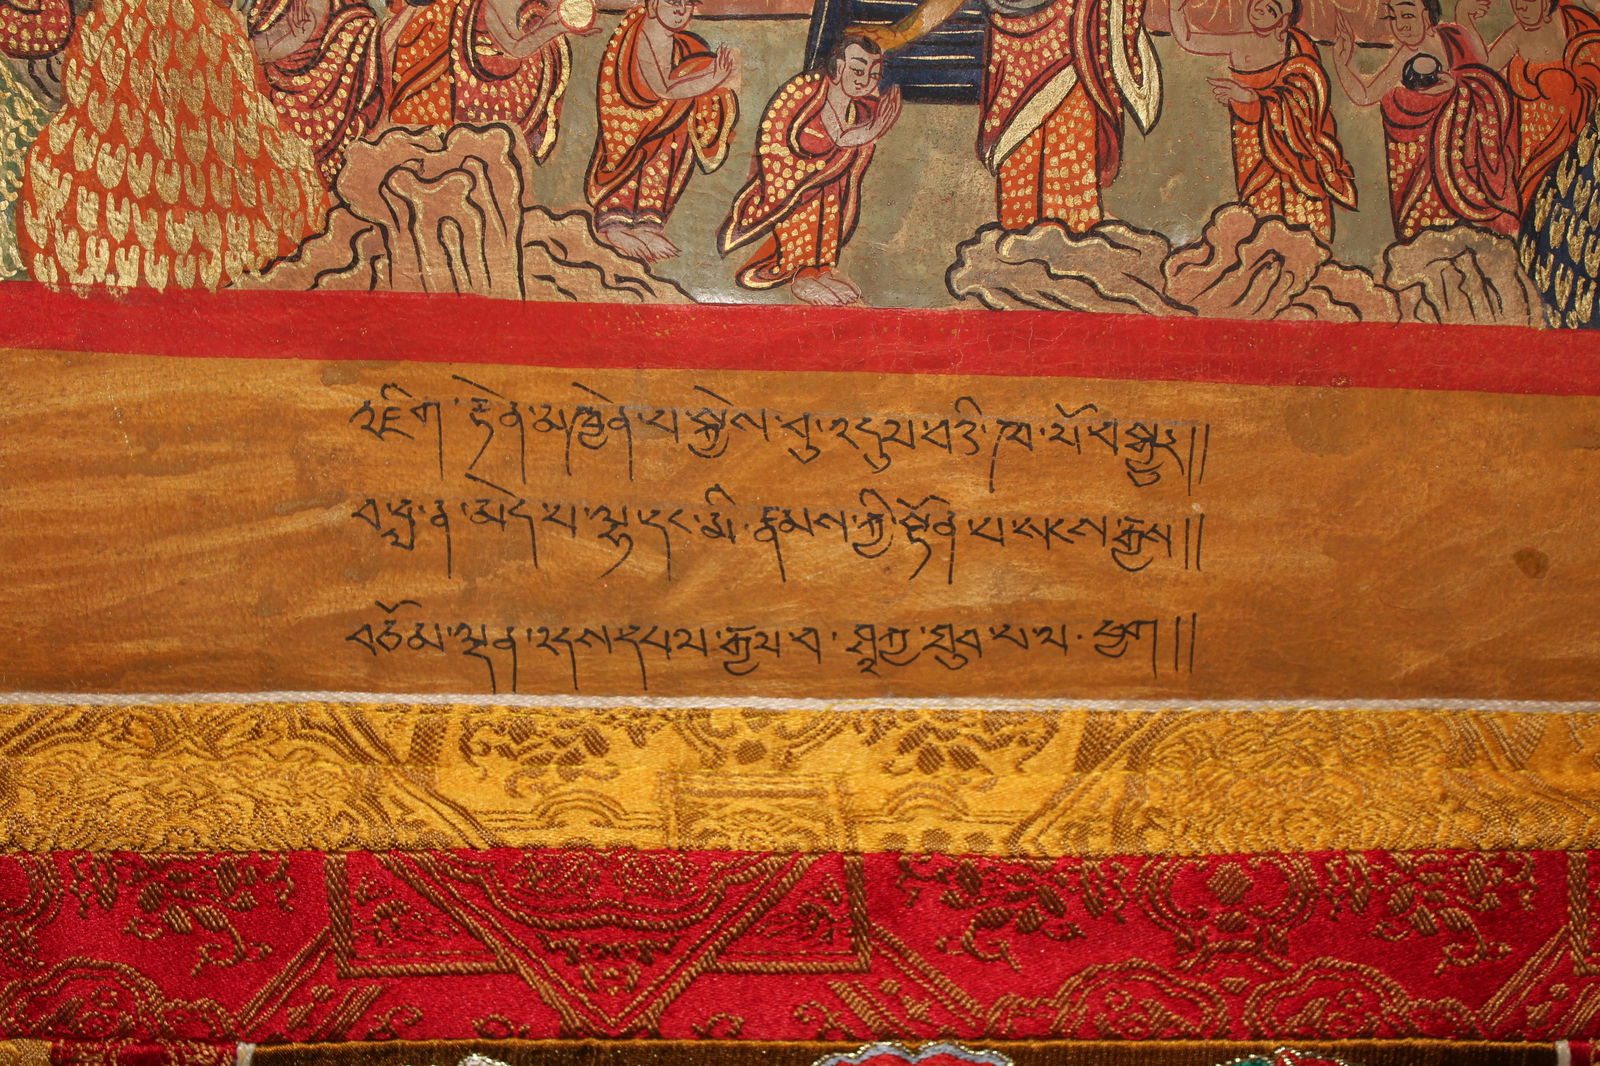 འཇིག་རྟེན་མཁྱེན་པ་སྐྱེས་བུ་འདུལ་བའི་ཁ་ལོ་བསྒྱུར།།
བ་བླ་ན་མེད་པ་ལྷ་དང་མི་རྣམས་ཀྱི་སྟོན་པ་སངས་རྒྱས།།
བཅོམ་ལྡན་འདས་དཔལ་རྒྱལ་བ་ཤཱཀྱ་ཐུབ་པ་ལ་ཕྱག།།